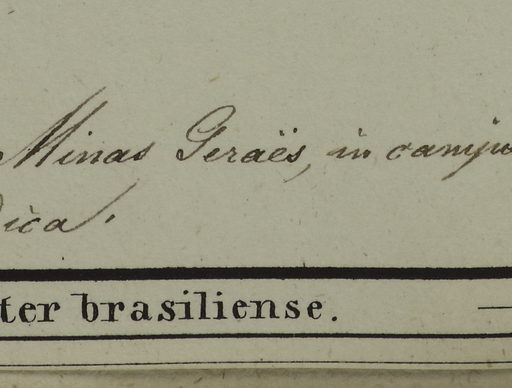 Minas Geraës, in campis
dica.
ter brasiliense.